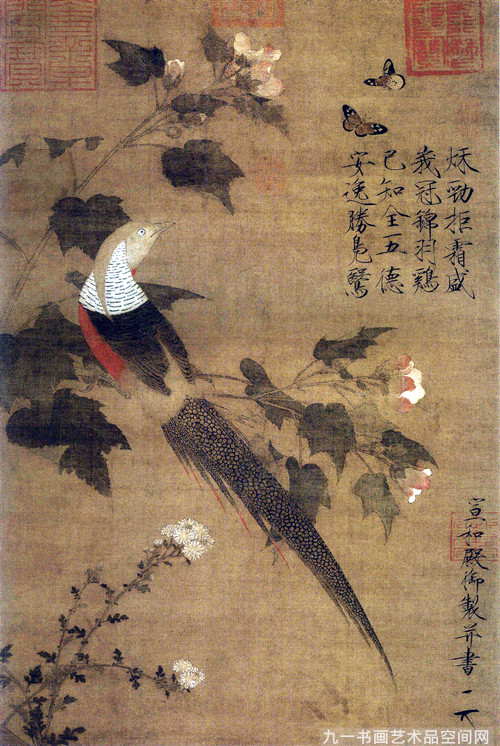 秋勁拒霜盛
峩冠錦羽鷄
已知全五德
安逸勝鳧鷖
宣和殿御製并書
九一书画艺术品空间网